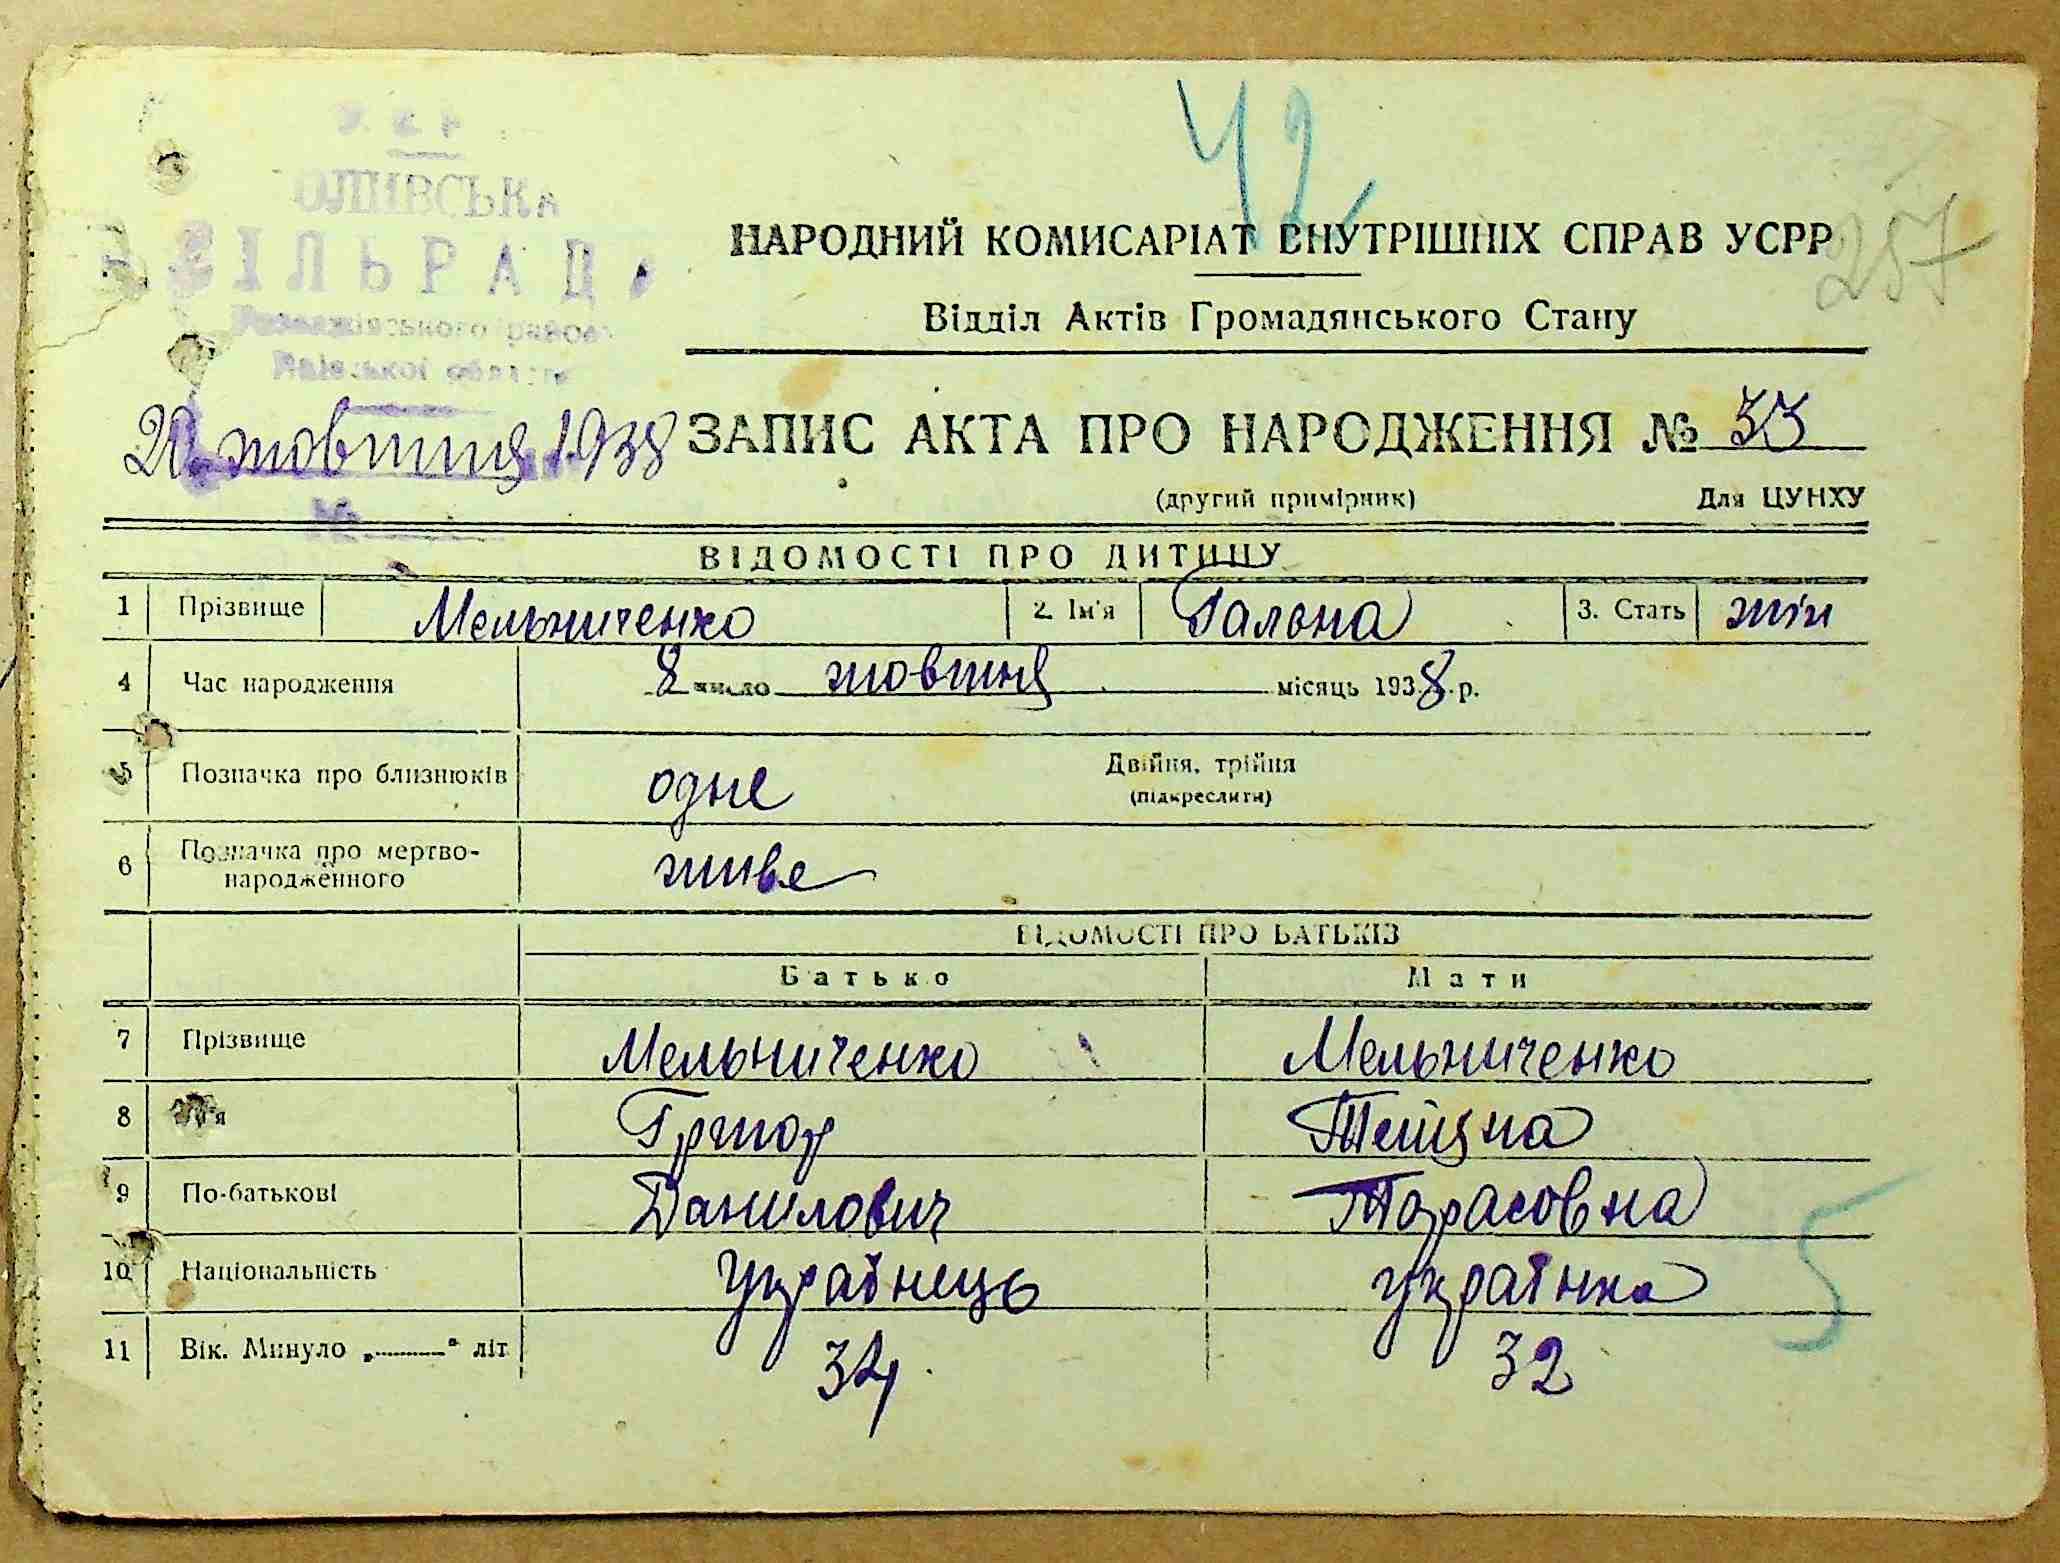 42
ОЛИВСЬКА
СІЛЬРАДА
НАРОДНИЙ КОМИСАРІАТ ВНУТРІШНІХ СПРАВ УСРР
257
Відділ Актів Громадянського Стану
20 жовтня 1938
ЗАПИС АКТА ПРО НАРОДЖЕННЯ № 33
(другий примірник) Для ЦУНХУ
№
ВІДОМОСТІ ПРО ДИТИНУ
1 Прізвище Мельниченко 2. Ім'я Гальона 3. Стать жін
4 Час народження 8 число жовтня місяць 1938 р.
5 Позначка про близнюків одне Двійня, трійня
(підкреслити)
6 Позначка про мертво-
народженного живе
ВІДОМОСТІ ПРО БАТЬКІВ
Батько Мати
7 Прізвище Мельниченко Мельниченко
8 Ім'я Григор
9 По-батькові Данилович Тарасовна
10 Національність Українець українка
5
11 Вік. Минуло „ “ літ 34 32